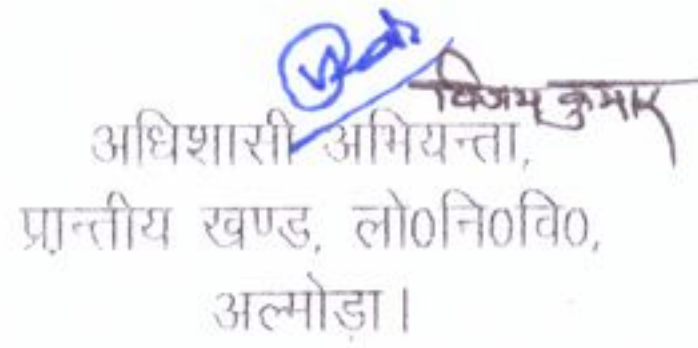 विजय कुमार
अधिशासी अभियन्ता,
प्रान्तीय खण्ड, लो0नि0वि0,
अल्मोड़ा।